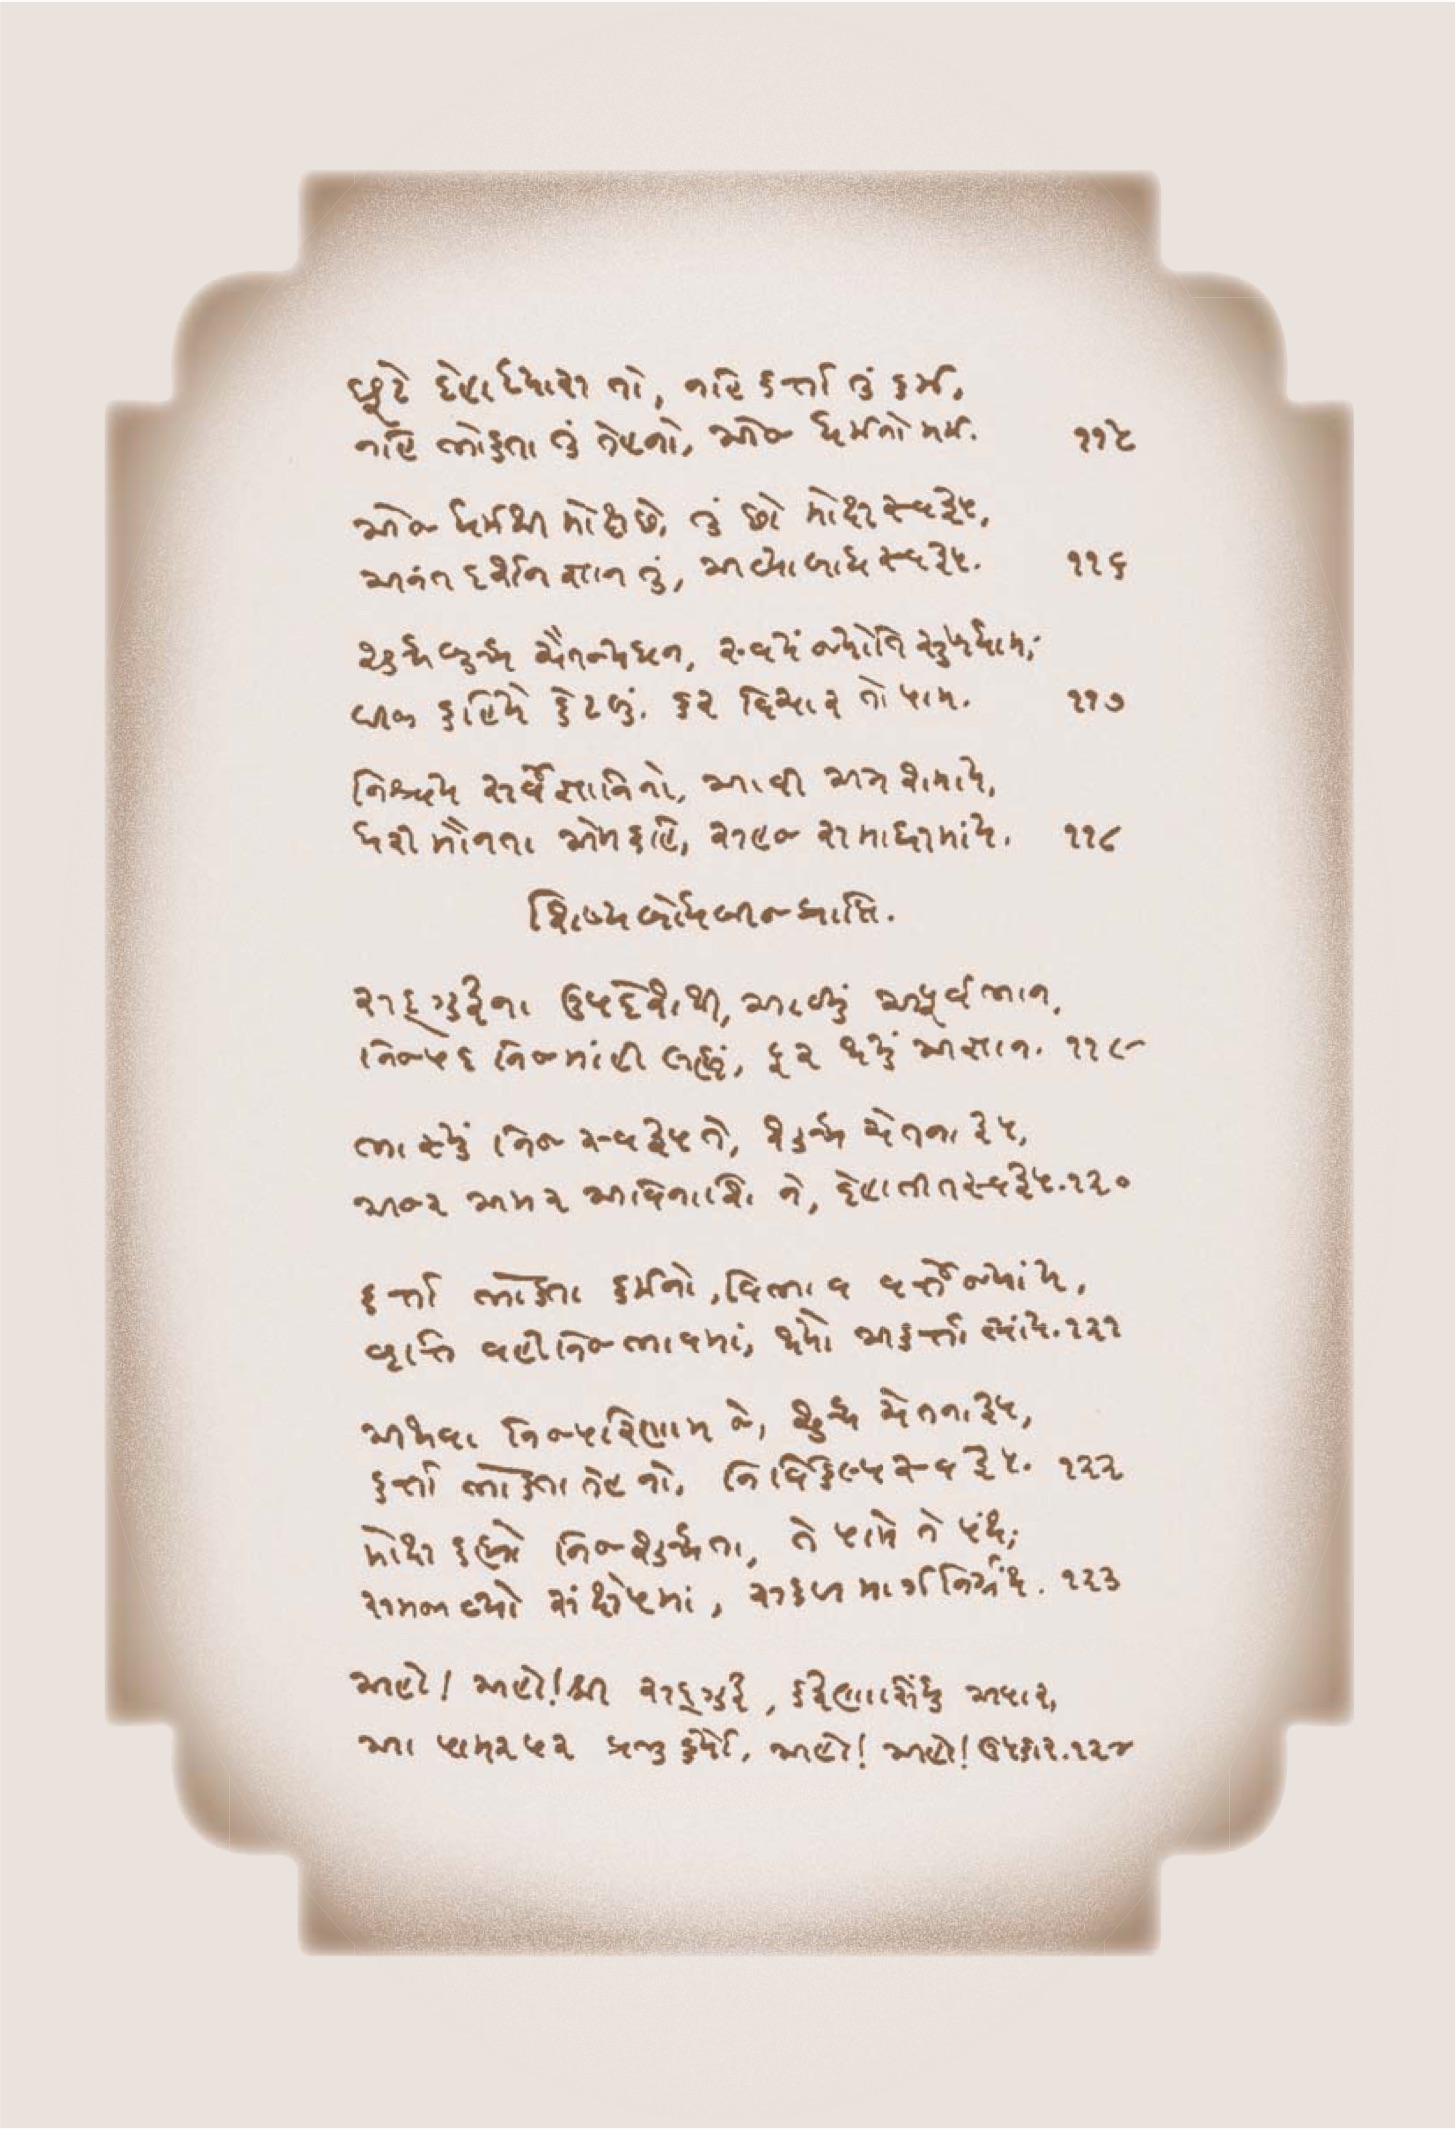 છૂટે દેહાધ્યાસ તો, નહિ કર્ત્તા તું કર્મ,
નહિ ભોક્તા તું તેહનો, એજ ધર્મનો મર્મ. ૧૧૫
એજ ધર્મથી મોક્ષ છે, તું છો મોક્ષ સ્વરૂપ,
અનંત દર્શન જ્ઞાન તું, અવ્યાબાધ સ્વરૂપ. ૧૧૬
શુદ્ધ બુદ્ધ ચૈતન્યઘન, સ્વયં જ્યોતિ સુખધામ;
બીજું કહિયે કેટલું, કર વિચાર તો પામ. ૧૧૭
નિશ્ચય સર્વે જ્ઞાનિનો, આવી અત્ર શમાય,
ધરી મૌનતા એમ કહિ, સહજ સમાધીમાંય. ૧૧૮
શિષ્યબોધબીજપ્રાપ્તિ.
સદ્ગુરૂના ઉપદેશથી, આવ્યું અપૂર્વ ભાન,
નિજપદ નિજમાંહી લહ્યું, દૂર થયું અજ્ઞાન. ૧૧૯
ભાસ્યું નિજ સ્વરૂપ તે, શુદ્ધ ચેતનારૂપ,
અજર અમર અવિનાશિ ને, દેહાતીતસ્વરૂપ. ૧૨૦
કર્ત્તા ભોક્તા કર્મનો, વિભાવ વર્ત્તે જ્યાંય,
વૃત્તિ વહી નિજભાવમાં, થયો અકર્ત્તા ત્યાંય. ૧૨૧
અથવા નિજપરિણામ જે, શુદ્ધ ચેતનારૂપ,
કર્ત્તા ભોક્તા તેહનો, નિર્વિકલ્પ સ્વરૂપ. ૧૨૨
મોક્ષ કહ્યો નિજશુદ્ધતા, તે પામે તે પંથ;
સમજાવ્યો સંક્ષેપમાં, સકળ માર્ગ નિર્ગ્રંથ. ૧૨૩
અહો! અહો! શ્રી સદ્ગુરૂ, કરૂણાસિંધુ અપાર,
આ પામરપર પ્રભુ કર્યો, અહો! અહો! ઉપકાર. ૧૨૪